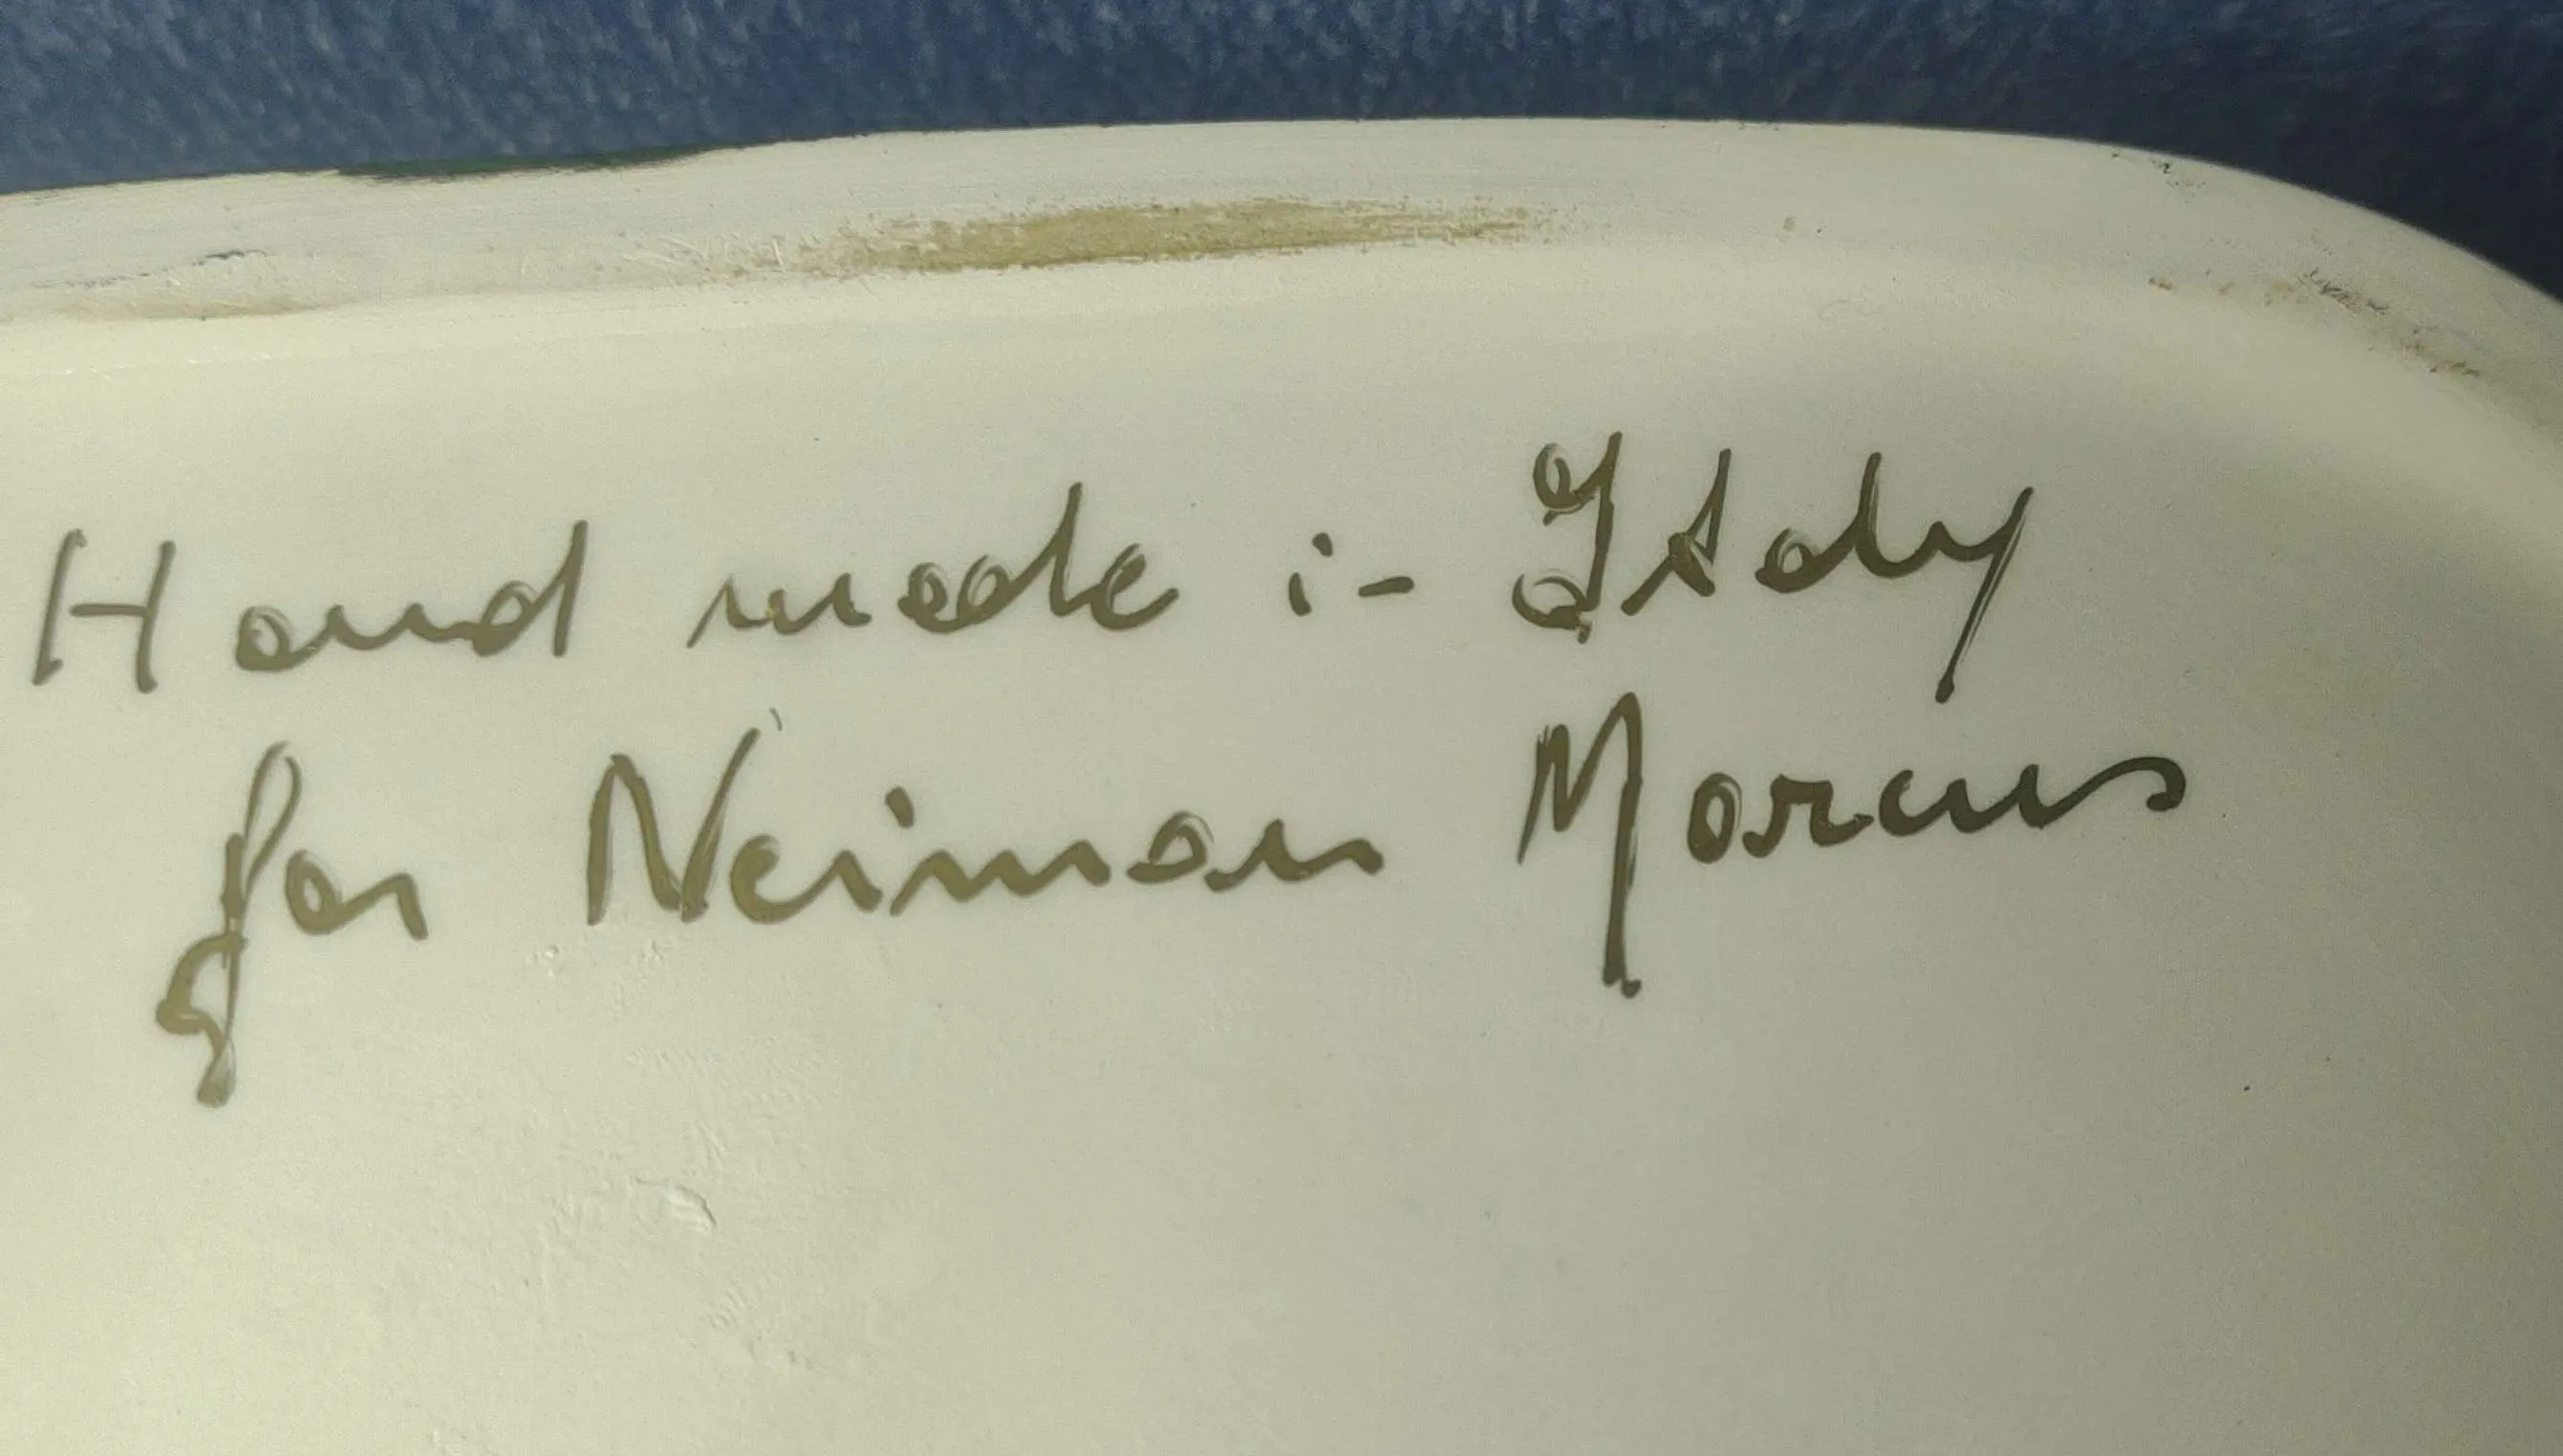 Hand made i- Italy
for Neiman Marcus